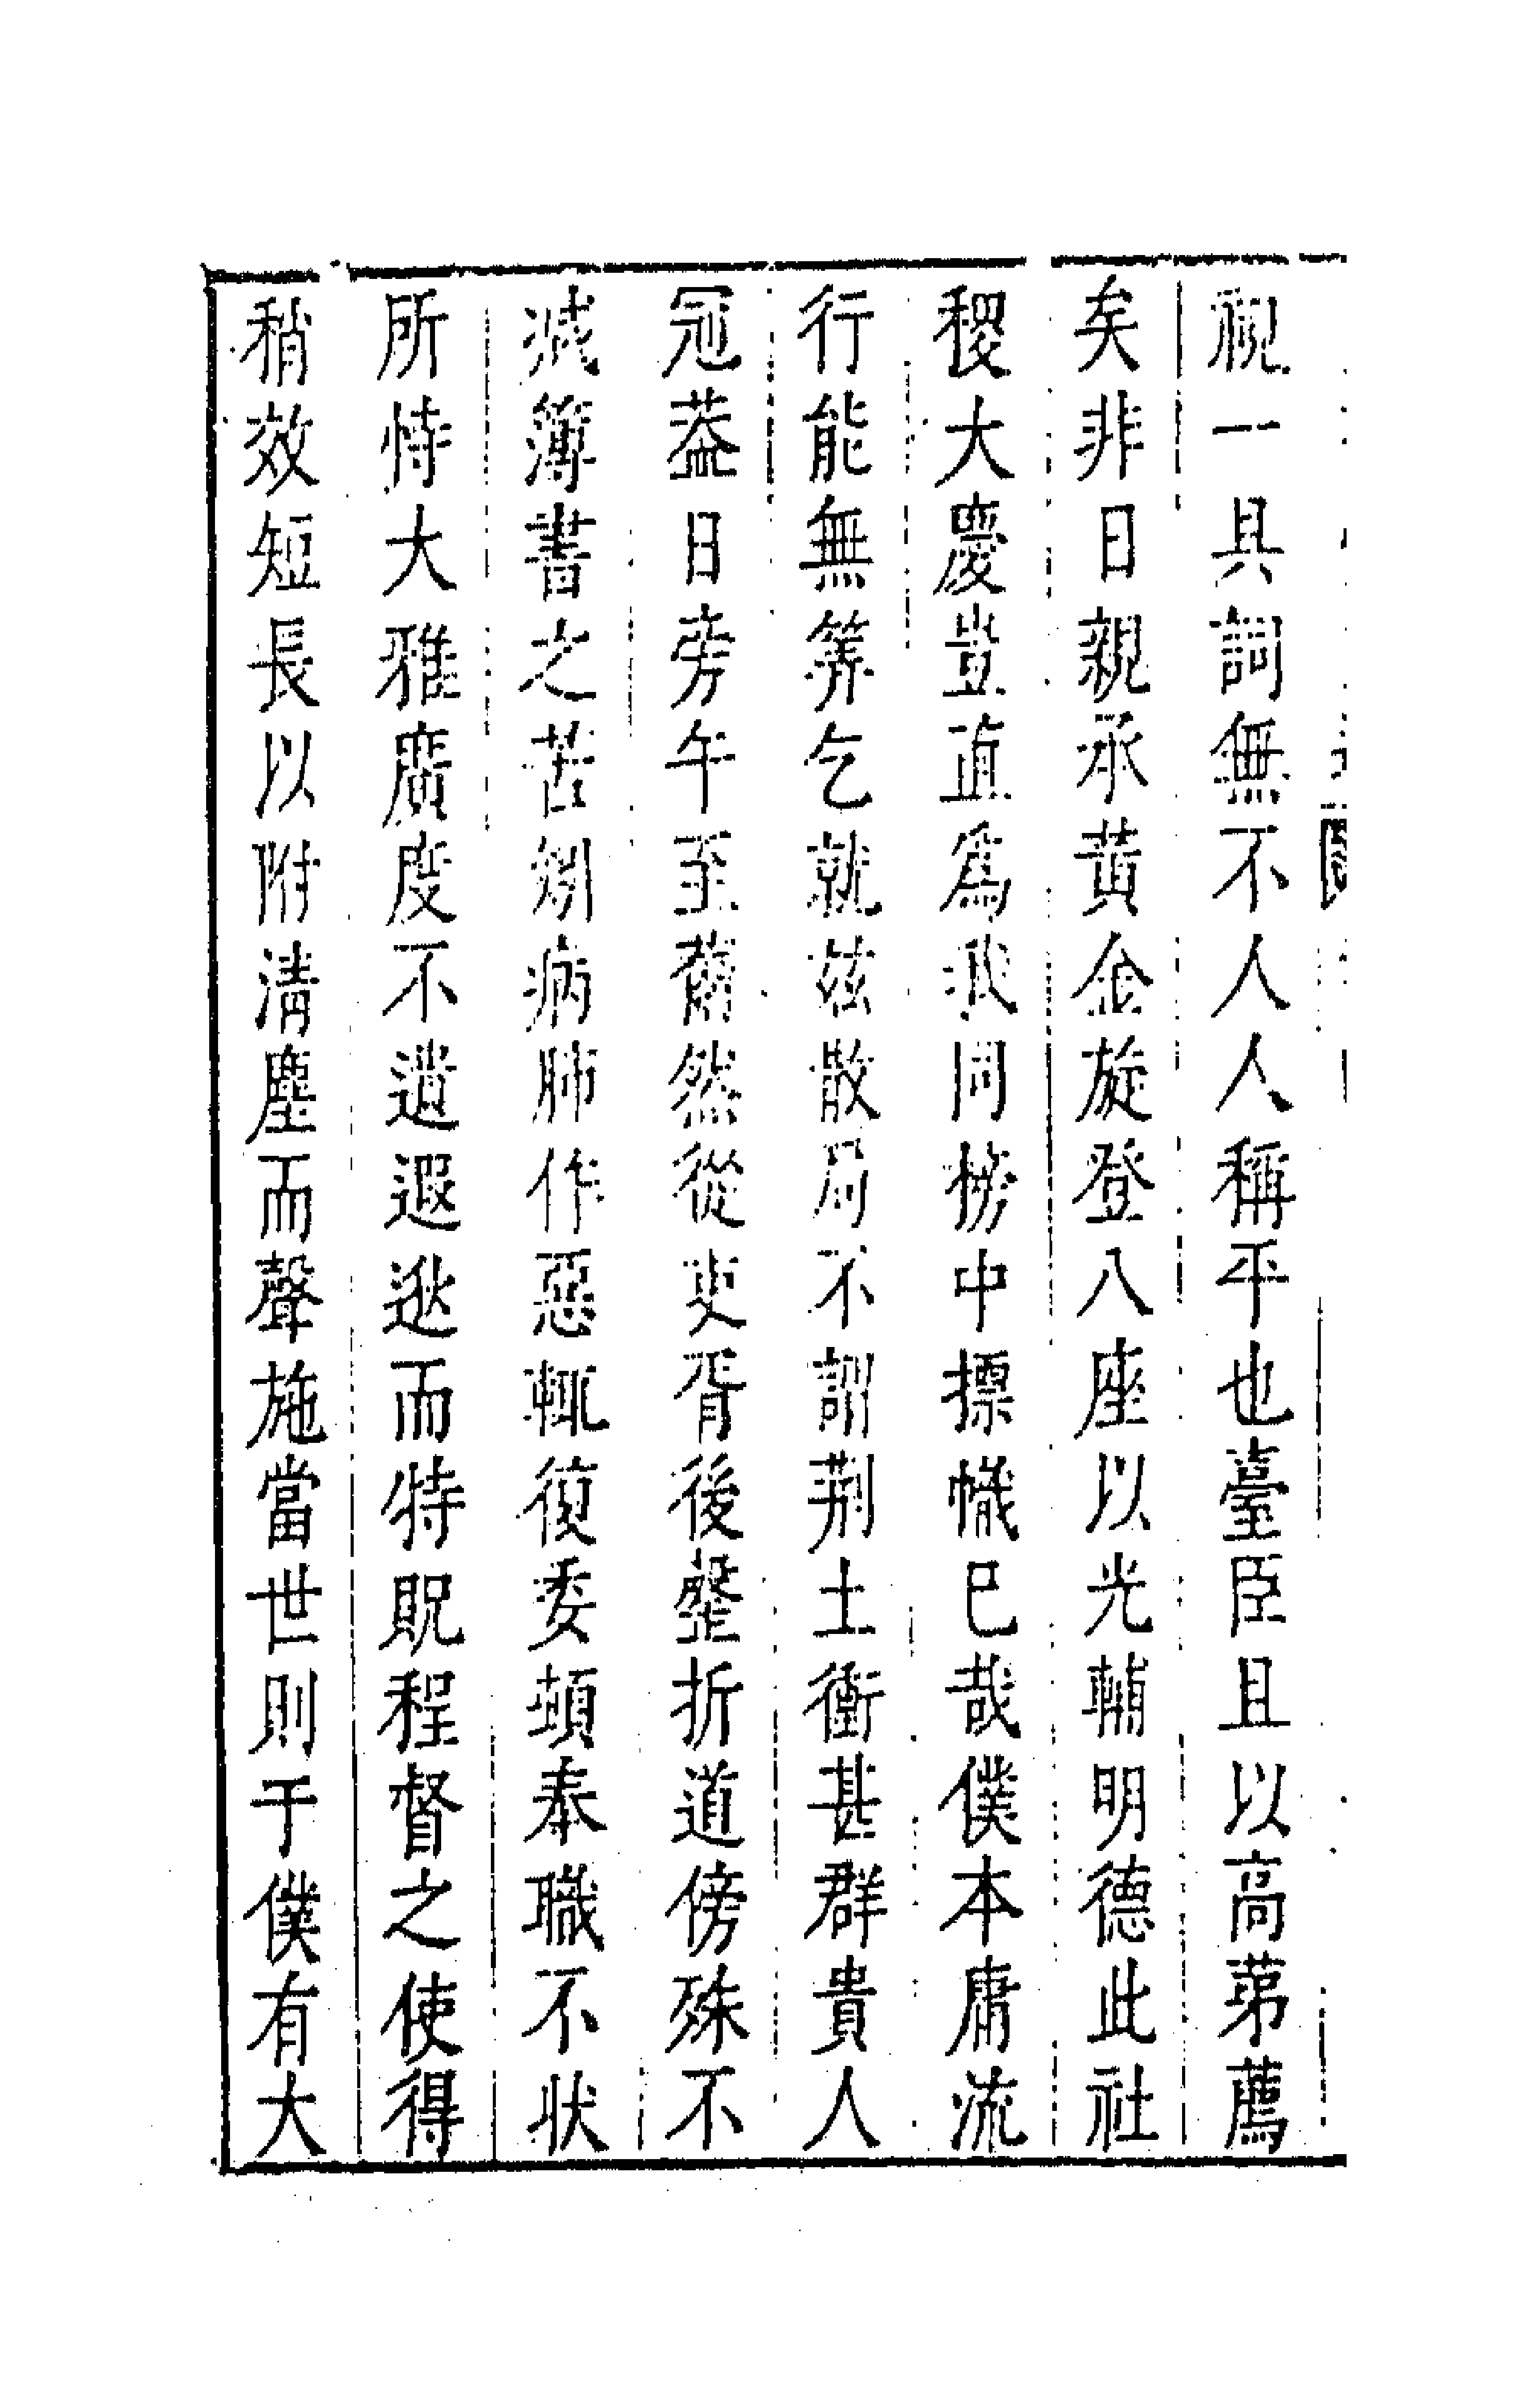 視一具詞無不人人稱平也臺臣且以高苐薦
矣非日親承黃金旋登八座以光輔明德此社
稷大慶豈直為我同榜中摽幟已哉僕本庸流
行能無筭乞就玆散局不謂荆土衝甚群貴人
冠葢日旁午至舊然從吏胥後罄折道傍殊不
减簿書之苦矧病肺作惡輒復委頓奉職不狀
所恃大雅廣度不遺遐逖而特貺程督之使得
稍效短長以附清塵而聲施當世則于僕有大